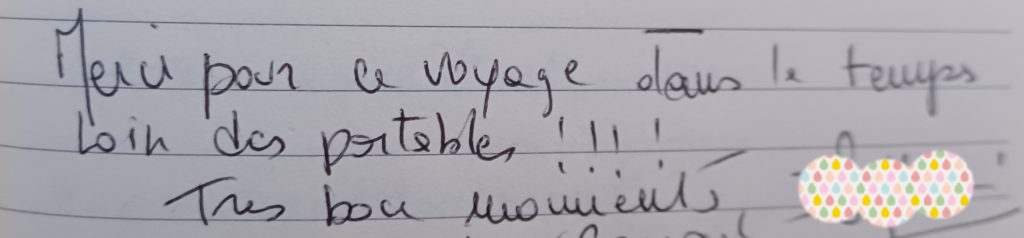 Merci pour ce voyage dans le temps
loin des portables !!!!
Tres bon moments